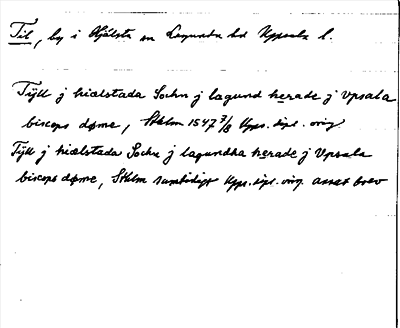 Til, by i Hjälsta sn Lagunda hd Uppsala l.
Tijll j hiælstada Sochn j lagund herade j Vpsala
biscops døme, Sthlm 1547 7/8 Upps. dipl. orig.
Tijll j hiælstada Sochn j lagundha herade j Vpsala
biscops døme, Sthlm samtidigt Upps. dipl. orig. annat brev